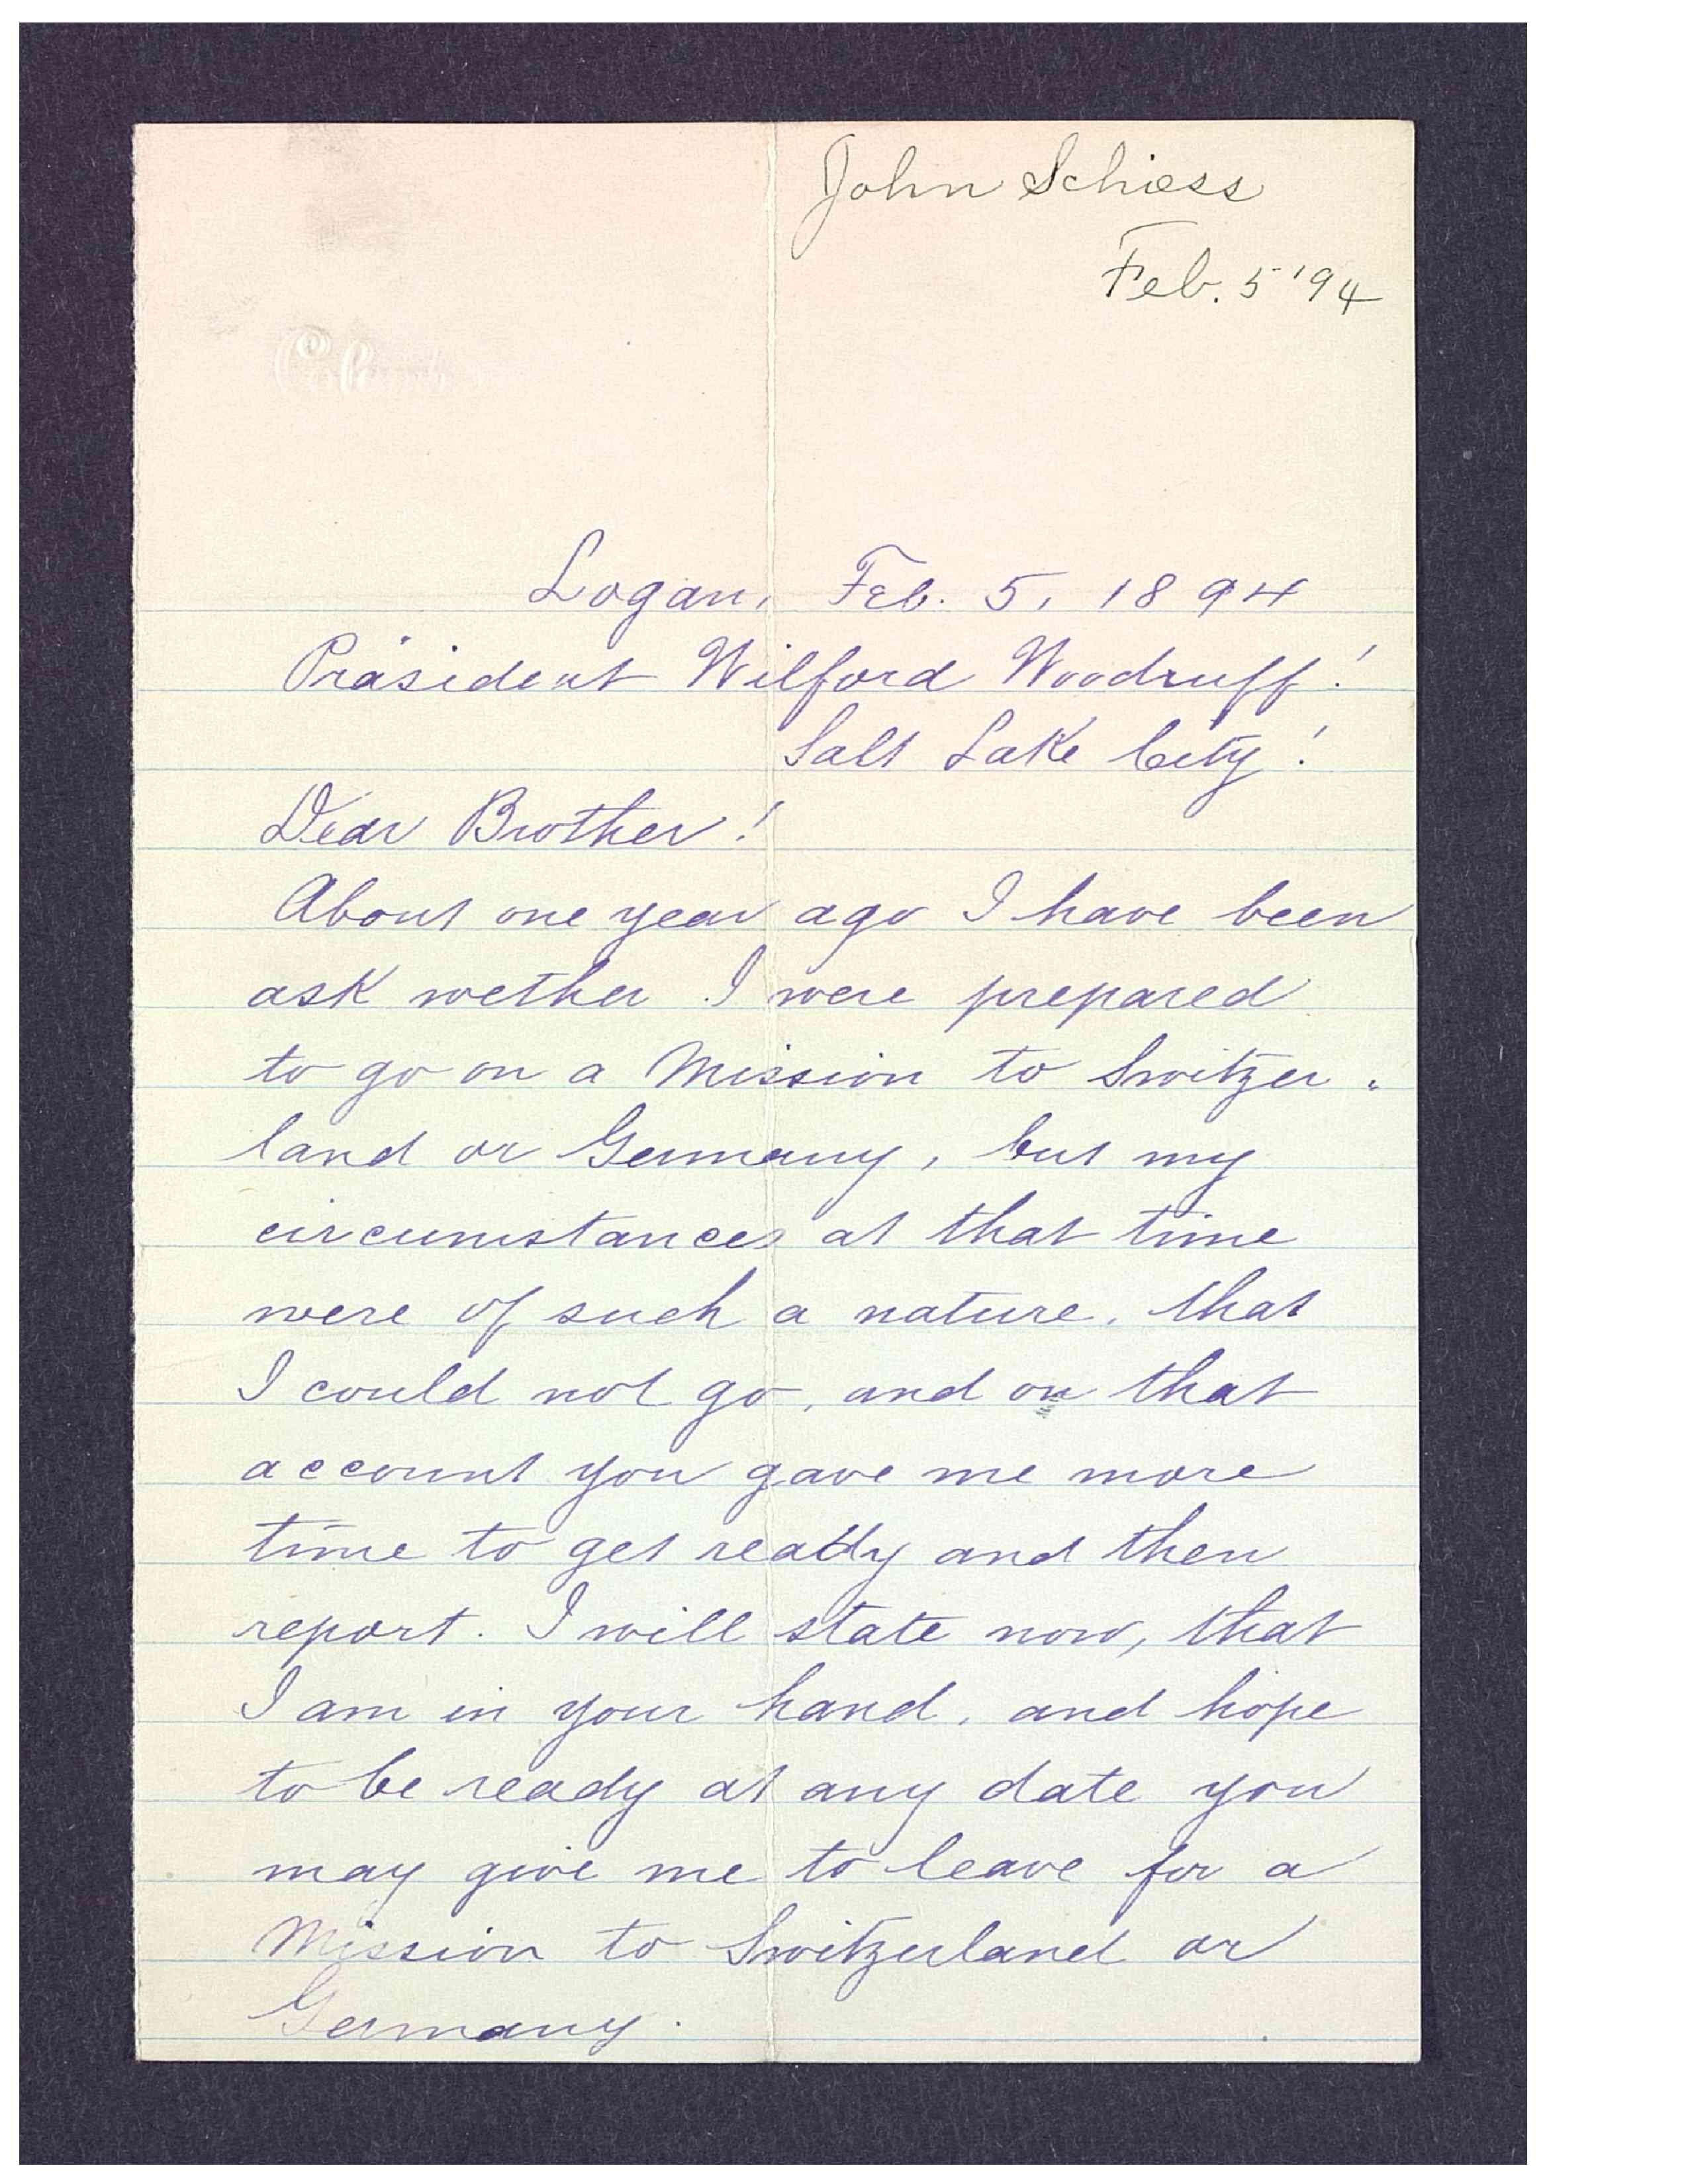 John Schiess
Feb. 5 '94
Logan, Feb. 5, 1894
Präsident Wilford Woodruff!
Salt Lake City!
Dear Brother!
About one year ago I have been
ask wether I were prepared
to go on a Mission to Switzer=
land or Germany, but my
circumstances at that time
were of such a nature, that
I could not go, and on that
account you gave me more
time to get ready and then
report. I will state now, that
I am in your hand, and hope
to be ready at any date you
may give me to leave for a
Mission to Switzerland or
Germany.